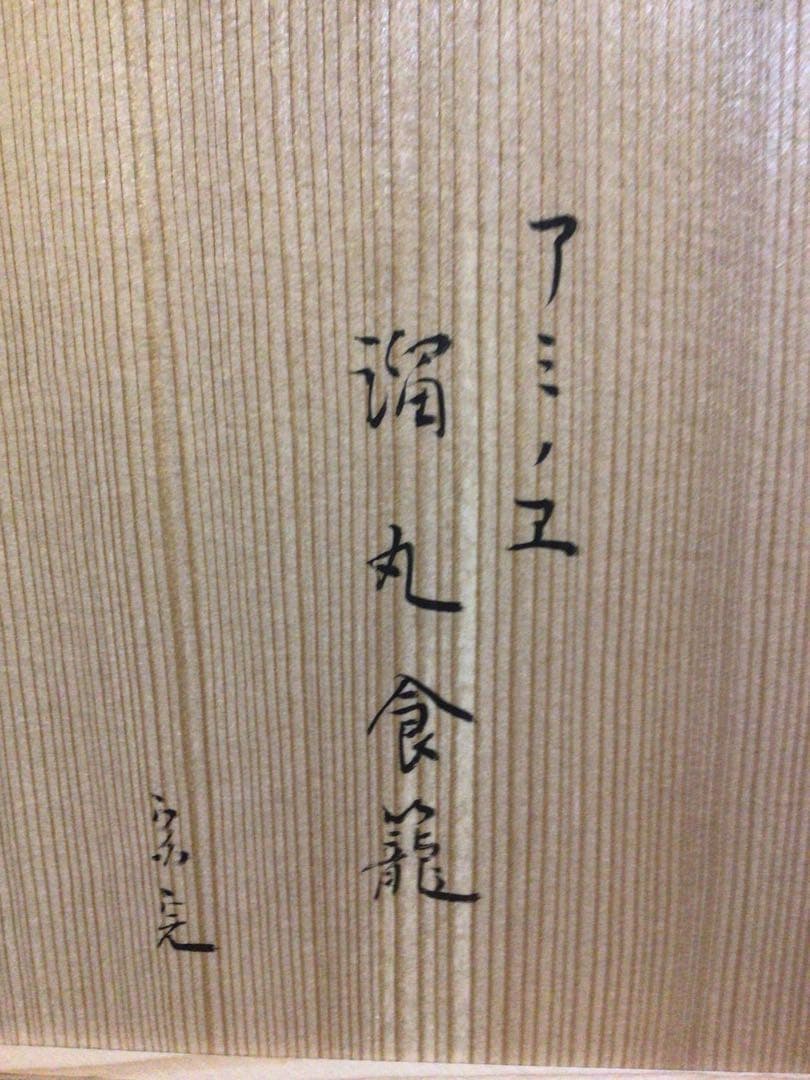 アミノヱ
溜丸食籠
宗完